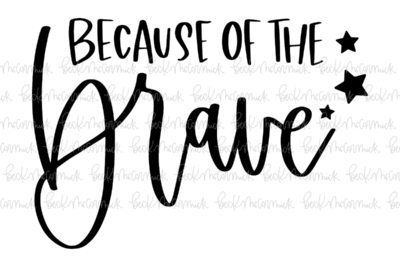 BECAUSE OF THE
Brave